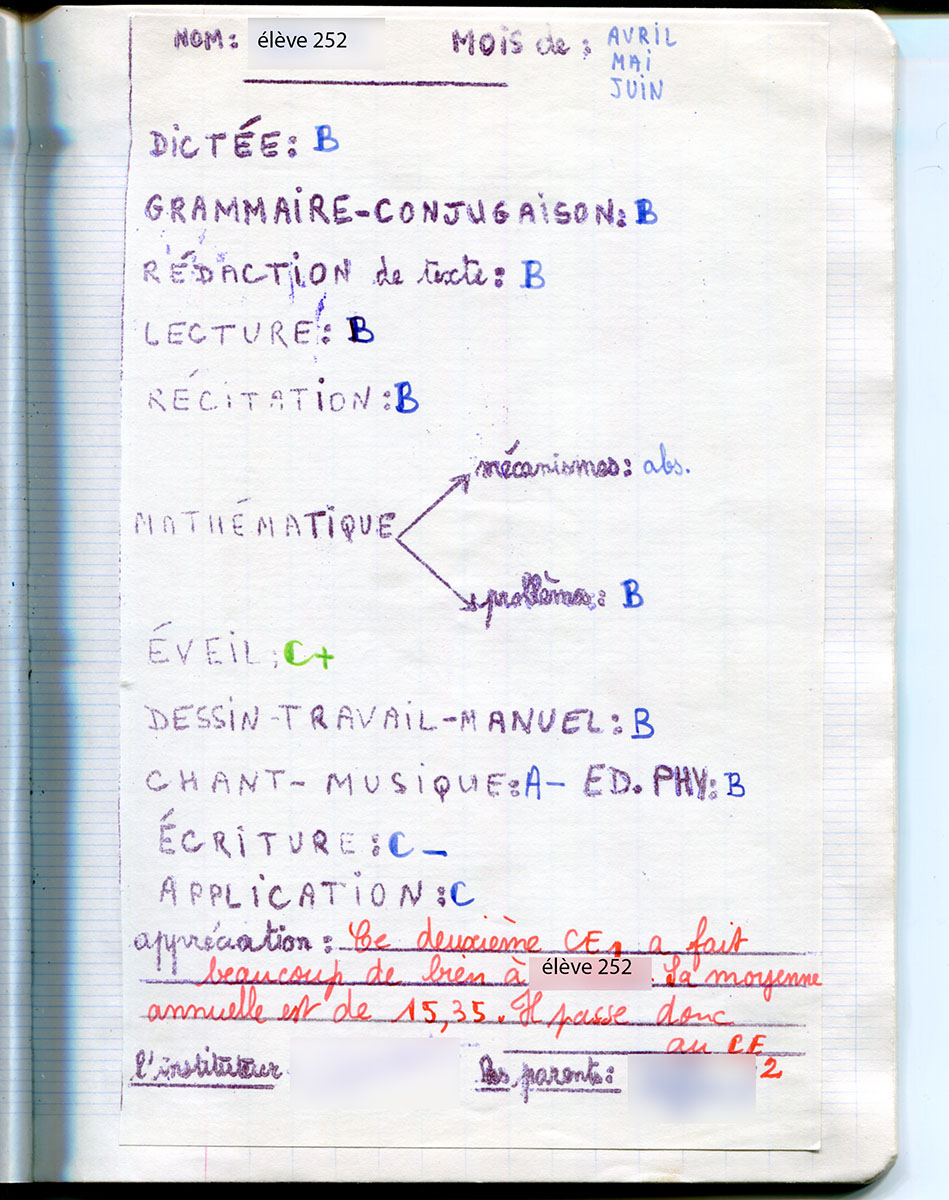 NOM: élève 252 MOIS de : AVRIL
MAI
JUIN
DICTÉE: B
GRAMMAIRE-CONJUGAISON: B
RÉDACTION de texte: B
LECTURE: B
RÉCITATION: B
mécanismes: abs.
MATHÉMATIQUE
problèmes: B
ÉVEIL: C+
DESSIN-TRAVAIL-MANUEL: B
CHANT-MUSIQUE: A- ED. PHY: B
ÉCRITURE: C-
APPLICATION: C
appréciation: Ce deuxième CE1 a fait
beaucoup de bien à élève 252. Sa moyenne
annuelle est de 15,35. Il passe donc
au CE2
l'instituteur Les parents: